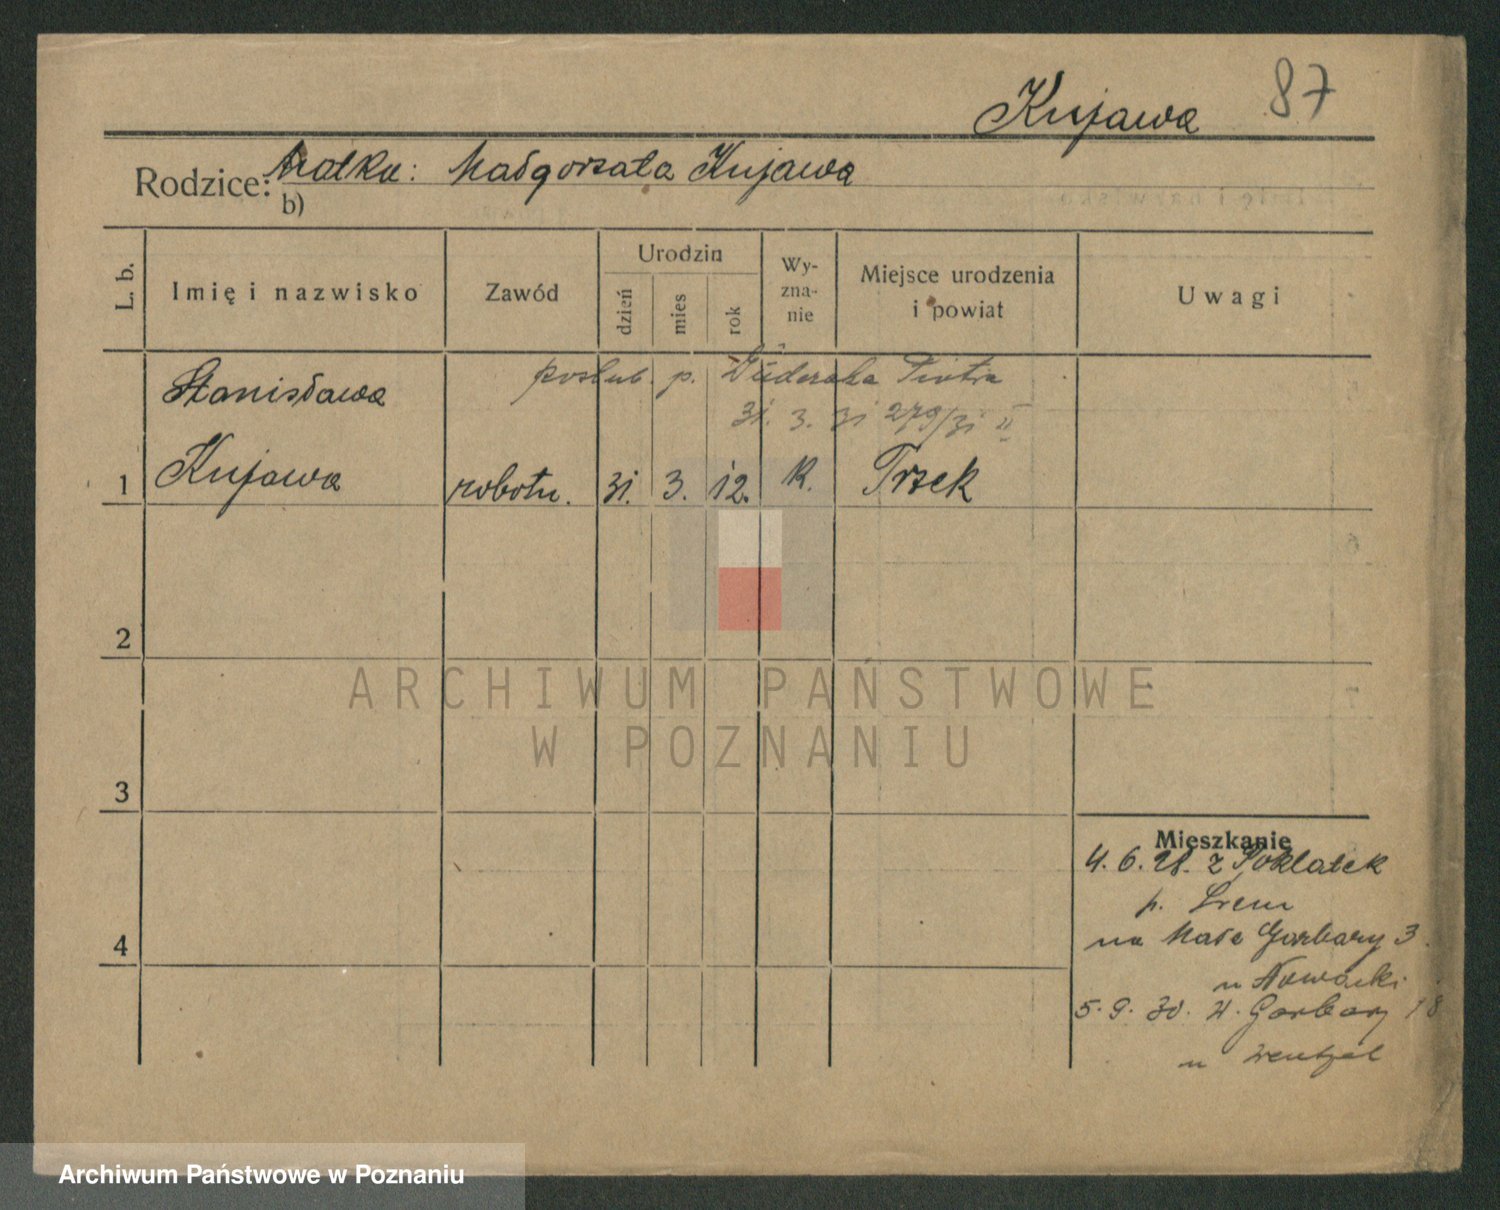 Kujawa 87
Rodzice: Matka: Małgorzata Kujawa
b)
L. b.
Imię i nazwisko
Zawód
Urodzin
dzień
mies
rok
Wy-
zna-
nie
Miejsce urodzenia
i powiat
Uwagi
poślub. p. Piotra
31. 3. 31 279/31 II
Stanisława
1 Kujawa robotn. 31. 3. 12. R. Trzek
2
3
4
Mieszkanie
4. 6. 28. z Poklatek
p. Śrem
na Małe Garbary 3.
u Nowacki
5. 9. 30. W. Garbary 18
u Wentzel
ARCHIWUM PAŃSTWOWE
W POZNANIU
Archiwum Państwowe w Poznaniu